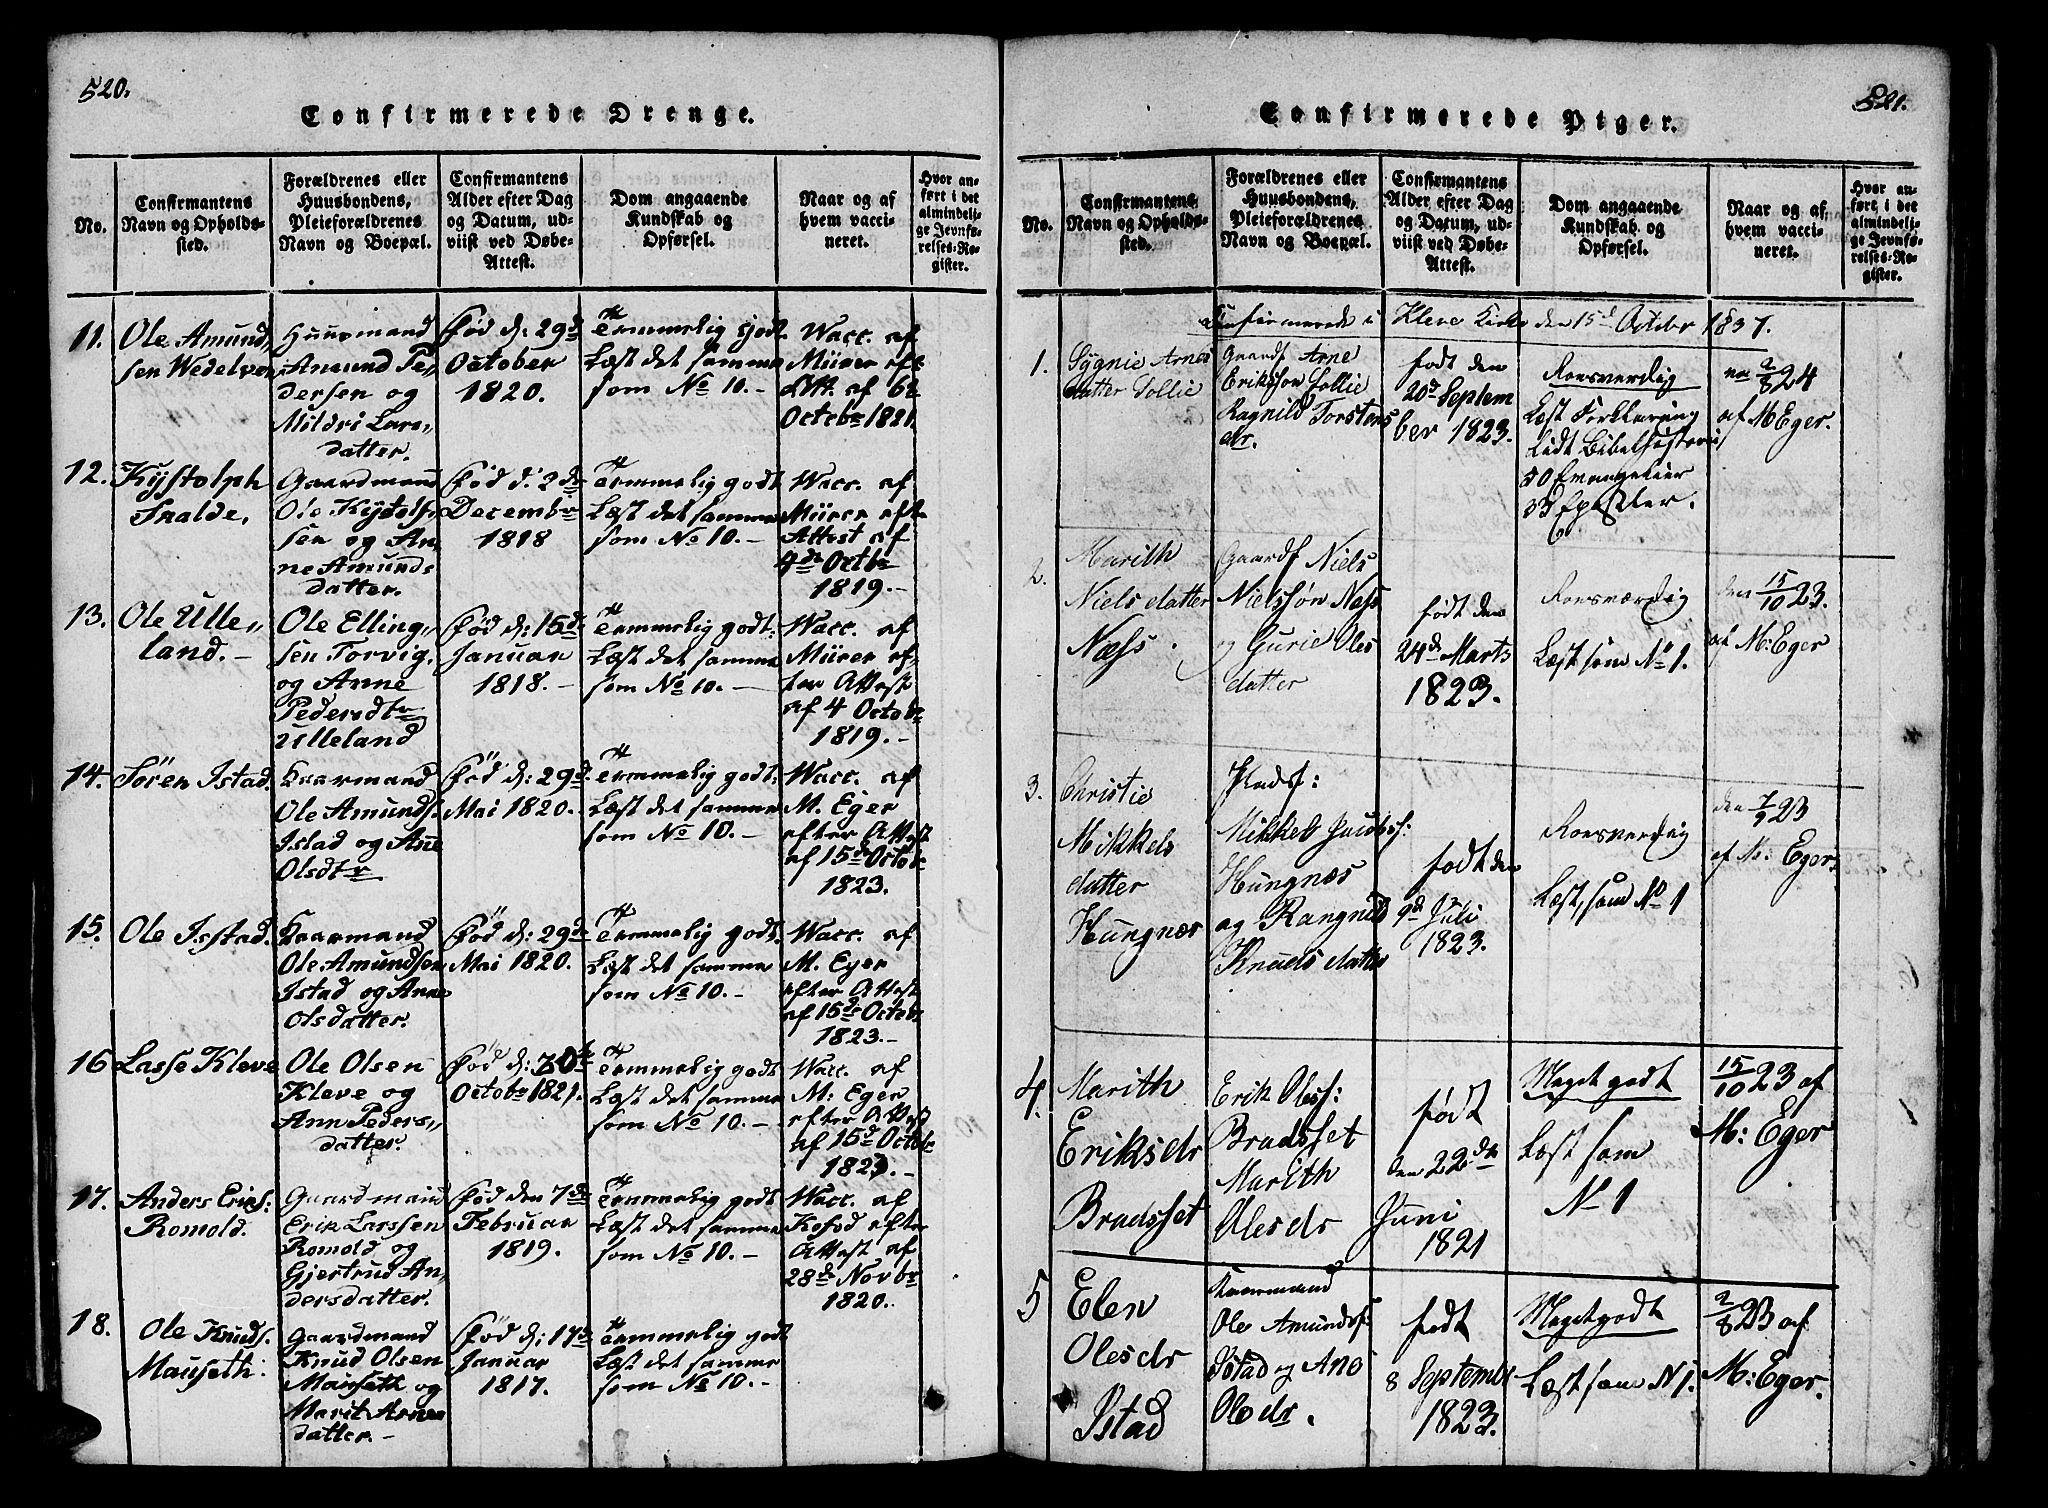 520.
Confirmerede Drenge.
No.
Confirmantens
Navn og Opholds-
sted.
Forældrenes eller
Huusbondens,
Pleieforældrenes
Navn og Boepæl.
Confirmantens
Alder efter Dag
og Datum, ud-
viist ved Døbe-
Attest.
Dom angaaende
Kundskab og
Opførsel.
Naar og af
hvem vacci-
neret.
Hvor an-
ført i det
almindeli-
ge Jevnfø-
relses-Re-
gister.
11.
Ole Amund„
sen Wedelven
Huusmand
Amund Pe„
dersen og
Mildri Lars„
datter.
Fød d: 29d
October
1820.
Temmelig godt.
Læst det samme
som No 10. -
Wacc. af
Mürer eft
Att. af 6t
Octobr 1821.
12.
Kystolph
Tralde.
Gaardmand
Ole Kystols
sen og An„
ne Amunds
datter.
Fød d: 2de
Decembr
1818
Temmelig godt
Læst det samme
som No 10. -
Wacc. af
Mürer eft-
Attest af
4de Octbr
1819. -
13.
Ole Ulle„
land. -
Ole Elling„
sen Torvig,
og Anne
Pedersdtr
Ulleland
Fød d: 15de
Januar
1818. -
Temmelig godt:
Læst det samme
som No 10. -
Wacc. af
Mürer ef„
ter Attest
af 4 Octobr
1819. -
14.
Sören Istad.
Kaarmand
Ole Amunds.
Istad og Ane
Olsdtr
Fød d: 29d.
Mai 1820.
Temmelig godt:
Læst det samme
som No 10. -
Wacc. af
M. Eger
efter Attest
af 15de Octob:
1823.
15.
Ole Istad.
Kaarmand
Ole Amundsen
Istad og Anne
Olsdatter.
Fød d: 29de
Mai 1820.
Temmelig godt.
Læst det samme
som No 10. -
Wacc. af
M. Eger
efter Attest
af 15de Octob:
1823. -
16
Lasse Kleve
Ole Olsen
Kleve og
Ann Peders„
datter.
Fød d: 30te
Octobr 1821.
Temmelig godt
Læst det samme
som No 10. -
Wacc. af
M: Eger
efter Attest
af 15d Octobr
1823. -
17.
Anders Eriks:
Romold.
Gaardmand
Erik Larssen
Romold og
Gjertrud An„
dersdatter.
Fød den 7de
Februar
1819.
Temmelig godt
Læst det samme
som No 10. -
Wacc. af
Kofod efter
Attest af
28de Novbr
1820. -
18.
Ole Knuds.
Mauseth:
Gaardmand
Knud Olsen
Mauseth og
Marit Arne
datter. -
Fød d: 17de
Januar
1817.
Temmelig godt
Læst det samme
som No 10. -
521.
Confirmerede Piger.
No.
Confirmantens
Navn og Opholds-
sted.
Forældrenes eller
Huusbondens,
Pleieforældrenes
Navn og Boepæl.
Confirmantens
Alder efter Dag
og Datum, ud-
viist ved Døbe-
Attest.
Dom angaaende
Kundskab og
Opførsel.
Naar og af
hvem vacci-
neret.
Hvor an-
ført i det
almindeli-
ge Jevnfø-
relses-Re-
gister.
Confirmerede i Kleve Kirke den 15d October 1837.
1.
Sygnie Arnes
datter Sollie
Gaardf Arne
Erikson Sollie
Ragnild Torstens
dr.
født den
20d Septem
ber 1823.
Roesverdig
Læst Forklaring
Lidt Bibelhistorie
50 Evangelier
33 Epistler.
2/8 24
af M Eger.
2.
Marith
Niels datter
Næss.
Gaardf Niels
Nielssøn Næss
og Gurie Oles
datter
født den
24de Marts
1823.
Roesværdig
Læst som No 1.
den 15/10 23.
af M: Eger
3.
Christie
Mikkels
datter
Hungnæs
Pladsf:
Mikkel Jacobss:
Hungnæs
og Rangnild
Knuds datter
født den
9d Juli
1823.
Roesverdig
Læst, som No 1
den 7/9 23
af M: Eger.
4.
Marith
Eriksdr
Bradsset
Erik Oless:
Bradsset
Marith
Olesdr
født
den 22de
Juni
1821
Meget godt
Læst som
N 1
15/10 23 af
M: Eger
5
Elen
Olesdr
Istad
Kaarmand
Ole Amundss:
Istad og Ane
Olesdr.
født
8 September
1823.
Meget godt
Læst som N 1.
2/8 23 af
M: Eger.